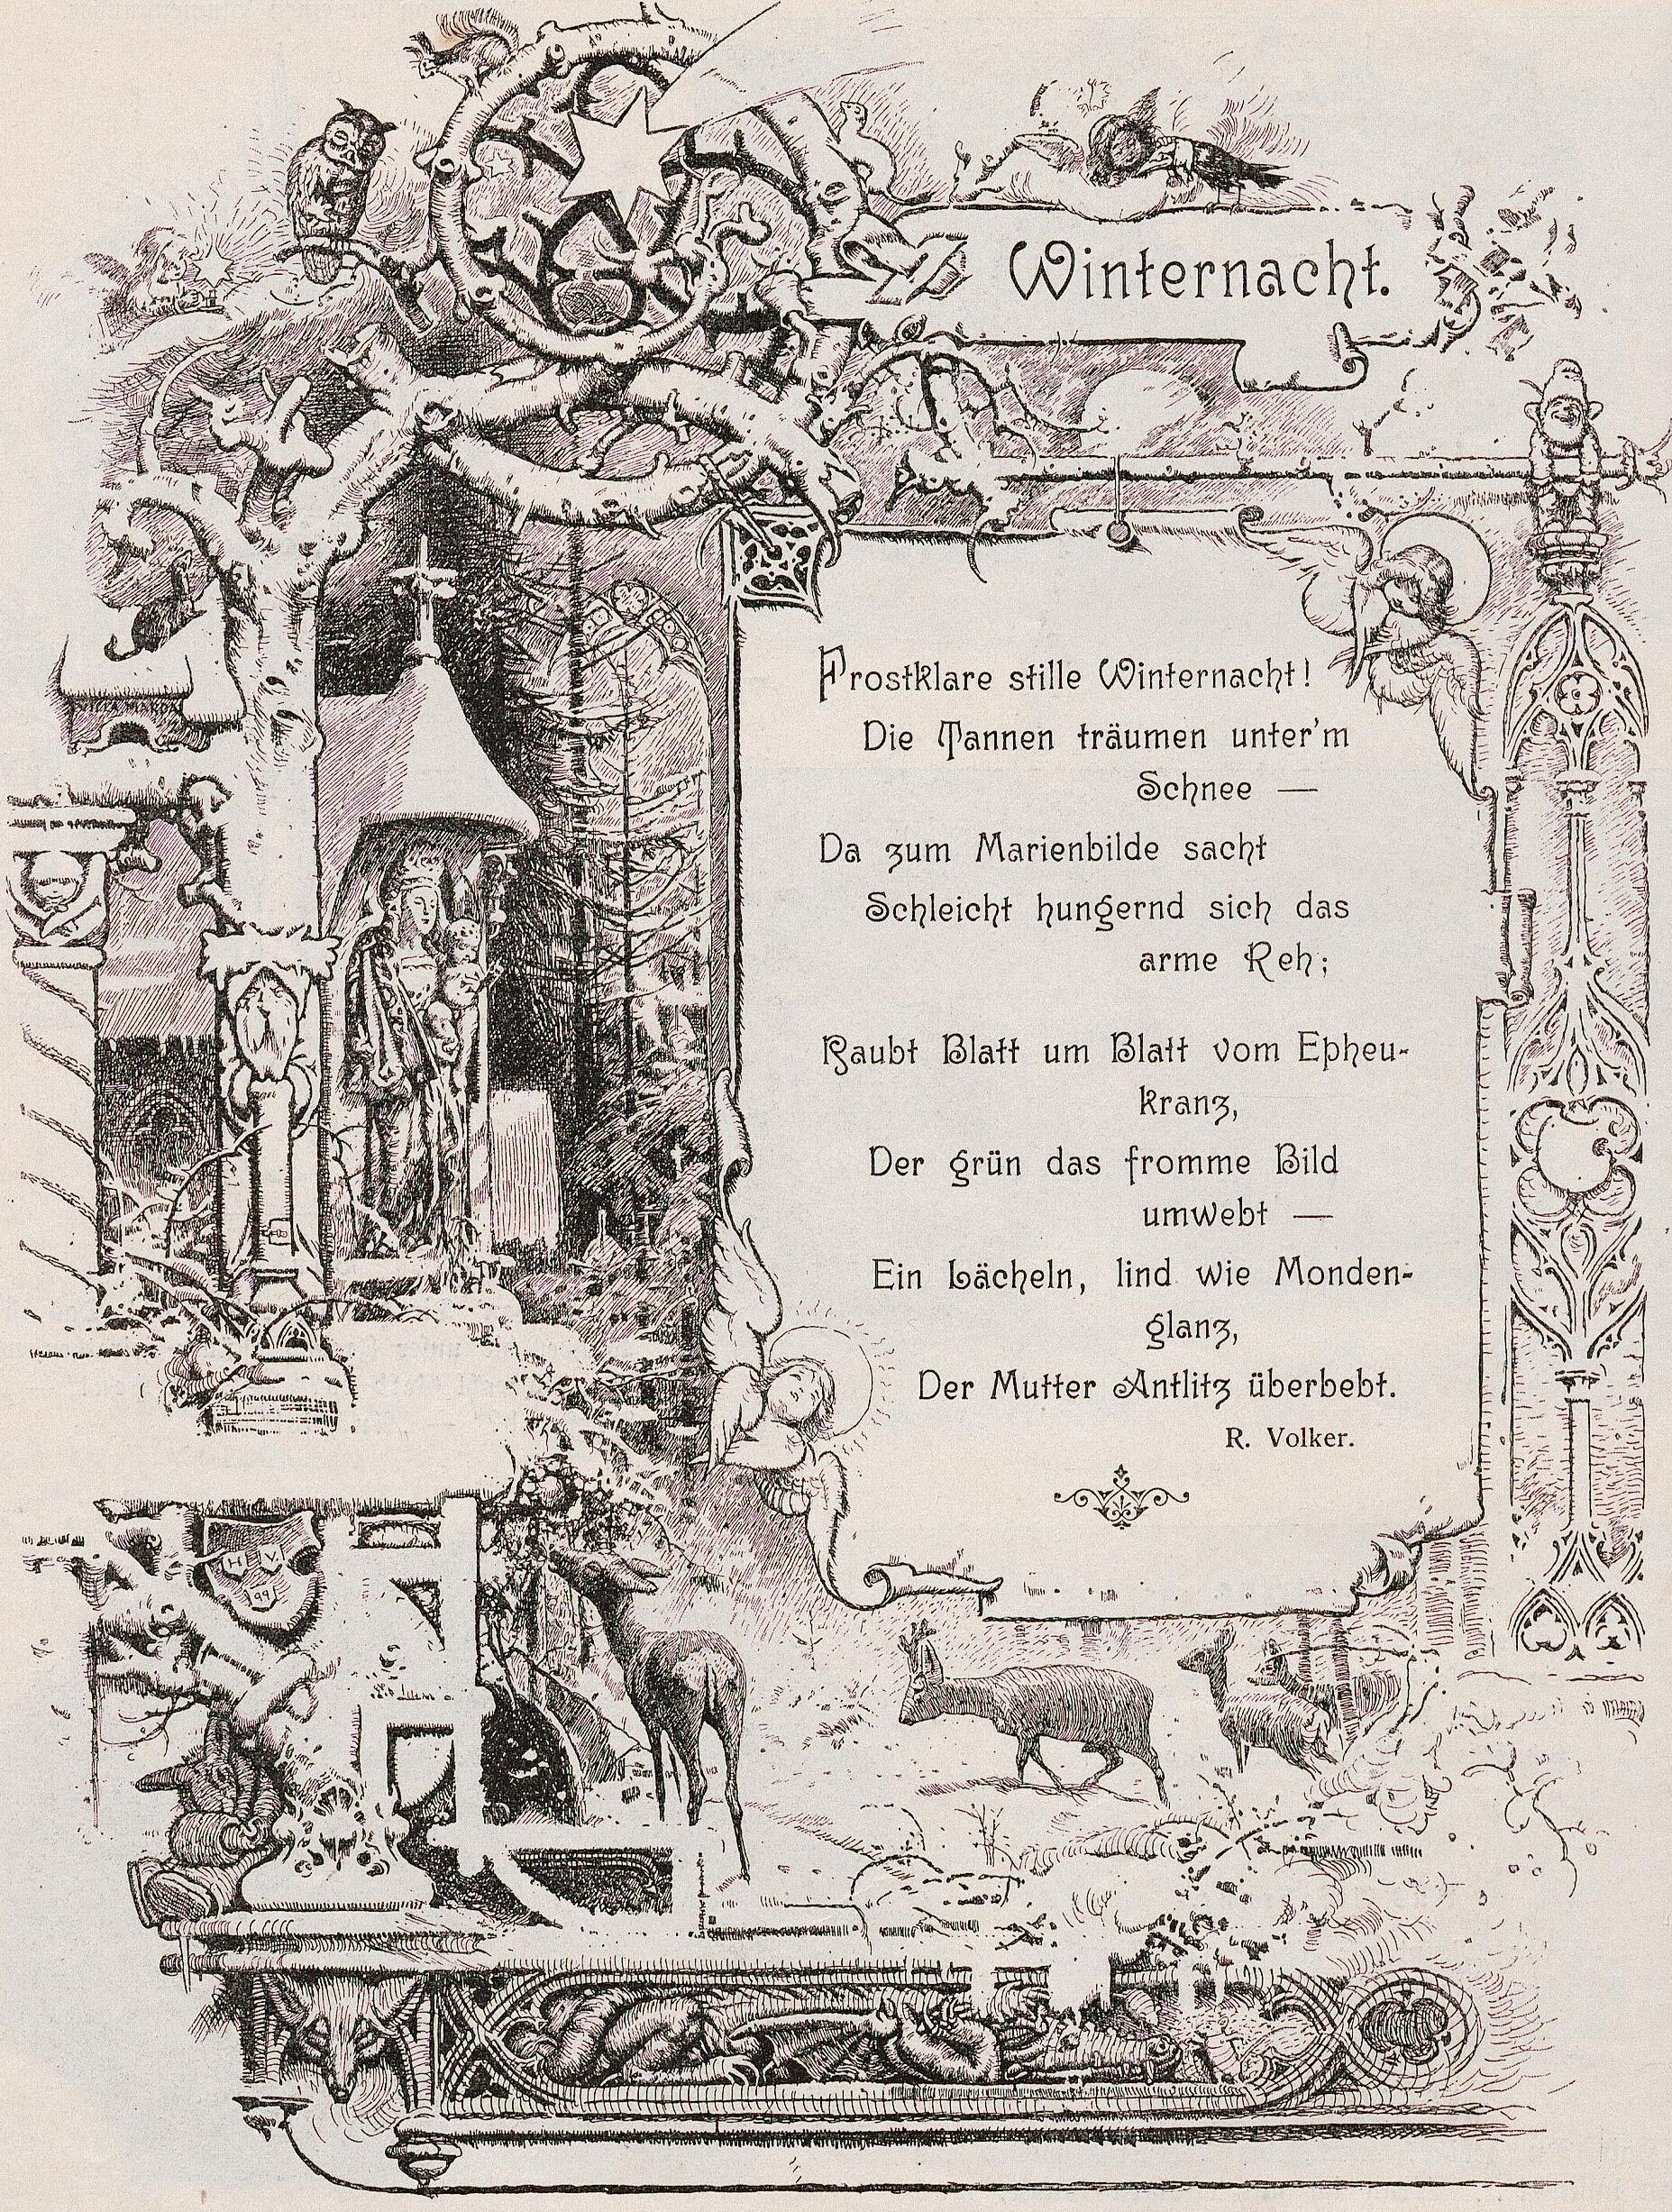 Winternacht.
Frostklare stille Winternacht!
Die Tannen träumen unter'm
Schnee —
Da zum Marienbilde sacht
Schleicht hungernd sich das
arme Reh;
Raubt Blatt um Blatt vom Epheu-
kranz,
Der grün das fromme Bild
umwebt —
Ein Lächeln, lind wie Monden-
glanz,
Der Mutter Antlitz überbebt.
R. Volker.
VILLA
H. V.
99